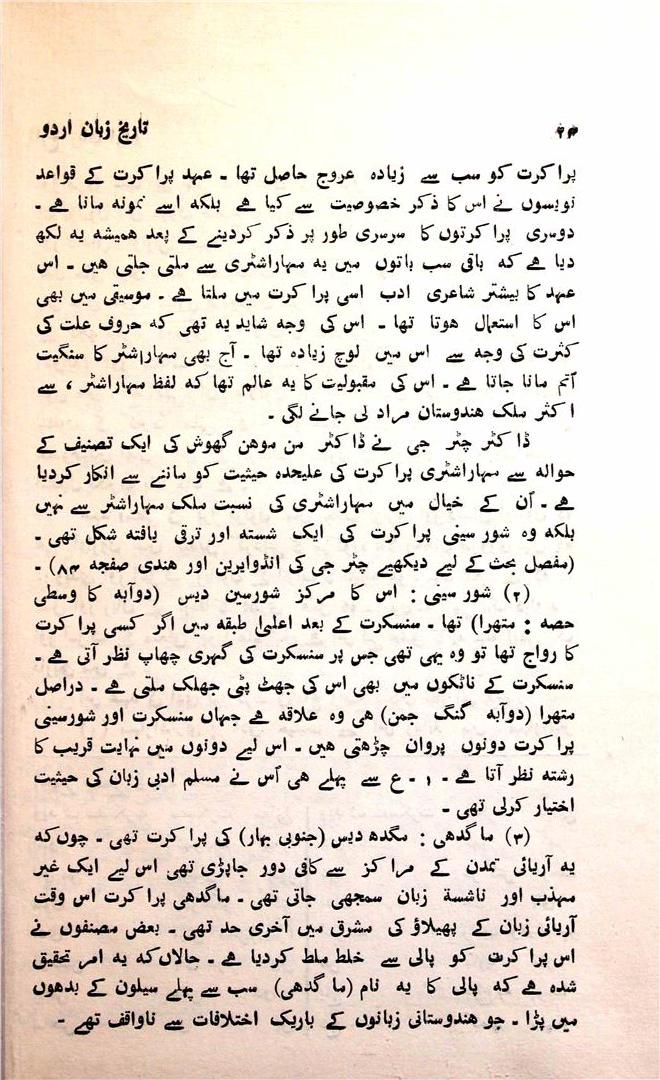 تاریخ زبان اردو
پراکرت کو سب سے زیادہ عروج حاصل تھا ۔ عہد پراکرت کے قواعد
نویسوں نے اس کا ذکر خصوصیت سے کیا ہے بلکہ اسے نمونہ مانا ہے ۔
دوسری پراکرتوں کا سرسری طور پر ذکر کردینے کے بعد ہمیشہ یہ لکھ
دیا ہے کہ باقی سب باتوں میں یہ مہاراشٹری سے ملتی جلتی ہیں ۔ اس
عہد کا بیشتر شاعری ادب اسی پراکرت میں ملتا ہے ۔ موسیقی میں بھی
اس کا استعمال ہوتا تھا ۔ اس کی وجہ شاید یہ تھی کہ حروف علت کی
کثرت کی وجہ سے اس میں لوچ زیادہ تھا ۔ آج بھی مہاراشٹر کا سنگیت
اُتم مانا جاتا ہے ۔ اس کی مقبولیت کا یہ عالم تھا کہ لفظ مہاراشٹر ، سے
اکثر ملک ہندوستان مراد لی جانے لگی ۔
ڈاکٹر چٹر جی نے ڈاکٹر من موہن گھوش کی ایک تصنیف کے
حوالہ سے مہاراشٹری پراکرت کی علیحدہ حیثیت کو ماننے سے انکار کردیا
ہے ۔ اُن کے خیال میں مہاراشٹری کی نسبت ملک مہاراشٹر سے نہیں
بلکہ وہ شور سینی پراکرت کی ایک شستہ اور ترقی یافتہ شکل تھی ۔
(مفصل بحث کے لیے دیکھیے چٹر جی کی انڈوایرین اور ہندی صفحہ ۸۴) ۔
(۲) شور سینی : اس کا مرکز شورسین دیس (دوآبہ کا وسطی
حصہ : متھرا) تھا ۔ سنسکرت کے بعد اعلیٰ طبقہ میں اگر کسی پراکرت
کا رواج تھا تو وہ یہی تھی جس پر سنسکرت کی گہری چھاپ نظر آتی ہے ۔
سنسکرت کے ناٹکوں میں بھی اس کی جھٹ پٹی جھلک ملتی ہے ۔ دراصل
متھرا (دوآبہ گنگ جمن) ہی وہ علاقہ ہے جہاں سنسکرت اور شورسینی
پراکرت دونوں پروان چڑھتی ہیں ۔ اس لیے دونوں میں نہایت قریب کا
رشتہ نظر آتا ہے ۔ ۱ ۔ ع سے پہلے ہی اُس نے مسلم ادبی زبان کی حیثیت
اختیار کرلی تھی ۔
(۳) ماگدھی : مگدھ دیس (جنوبی بہار) کی پراکرت تھی ۔ چوں کہ
یہ آریائی تمدن کے مراکز سے کافی دور جاپڑی تھی اس لیے ایک غیر
مہذب اور ناشستہ زبان سمجھی جاتی تھی ۔ ماگدھی پراکرت اس وقت
آریائی زبان کے پھیلاؤ کی مشرق میں آخری حد تھی ۔ بعض مصنفوں نے
اس پراکرت کو پالی سے خلط ملط کردیا ہے ۔ حالاں کہ یہ امر تحقیق
شدہ ہے کہ پالی کا یہ نام (ماگدھی) سب سے پہلے سیلون کے بدھوں
میں پڑا ۔ جو ہندوستانی زبانوں کے باریک اختلافات سے ناواقف تھے ۔